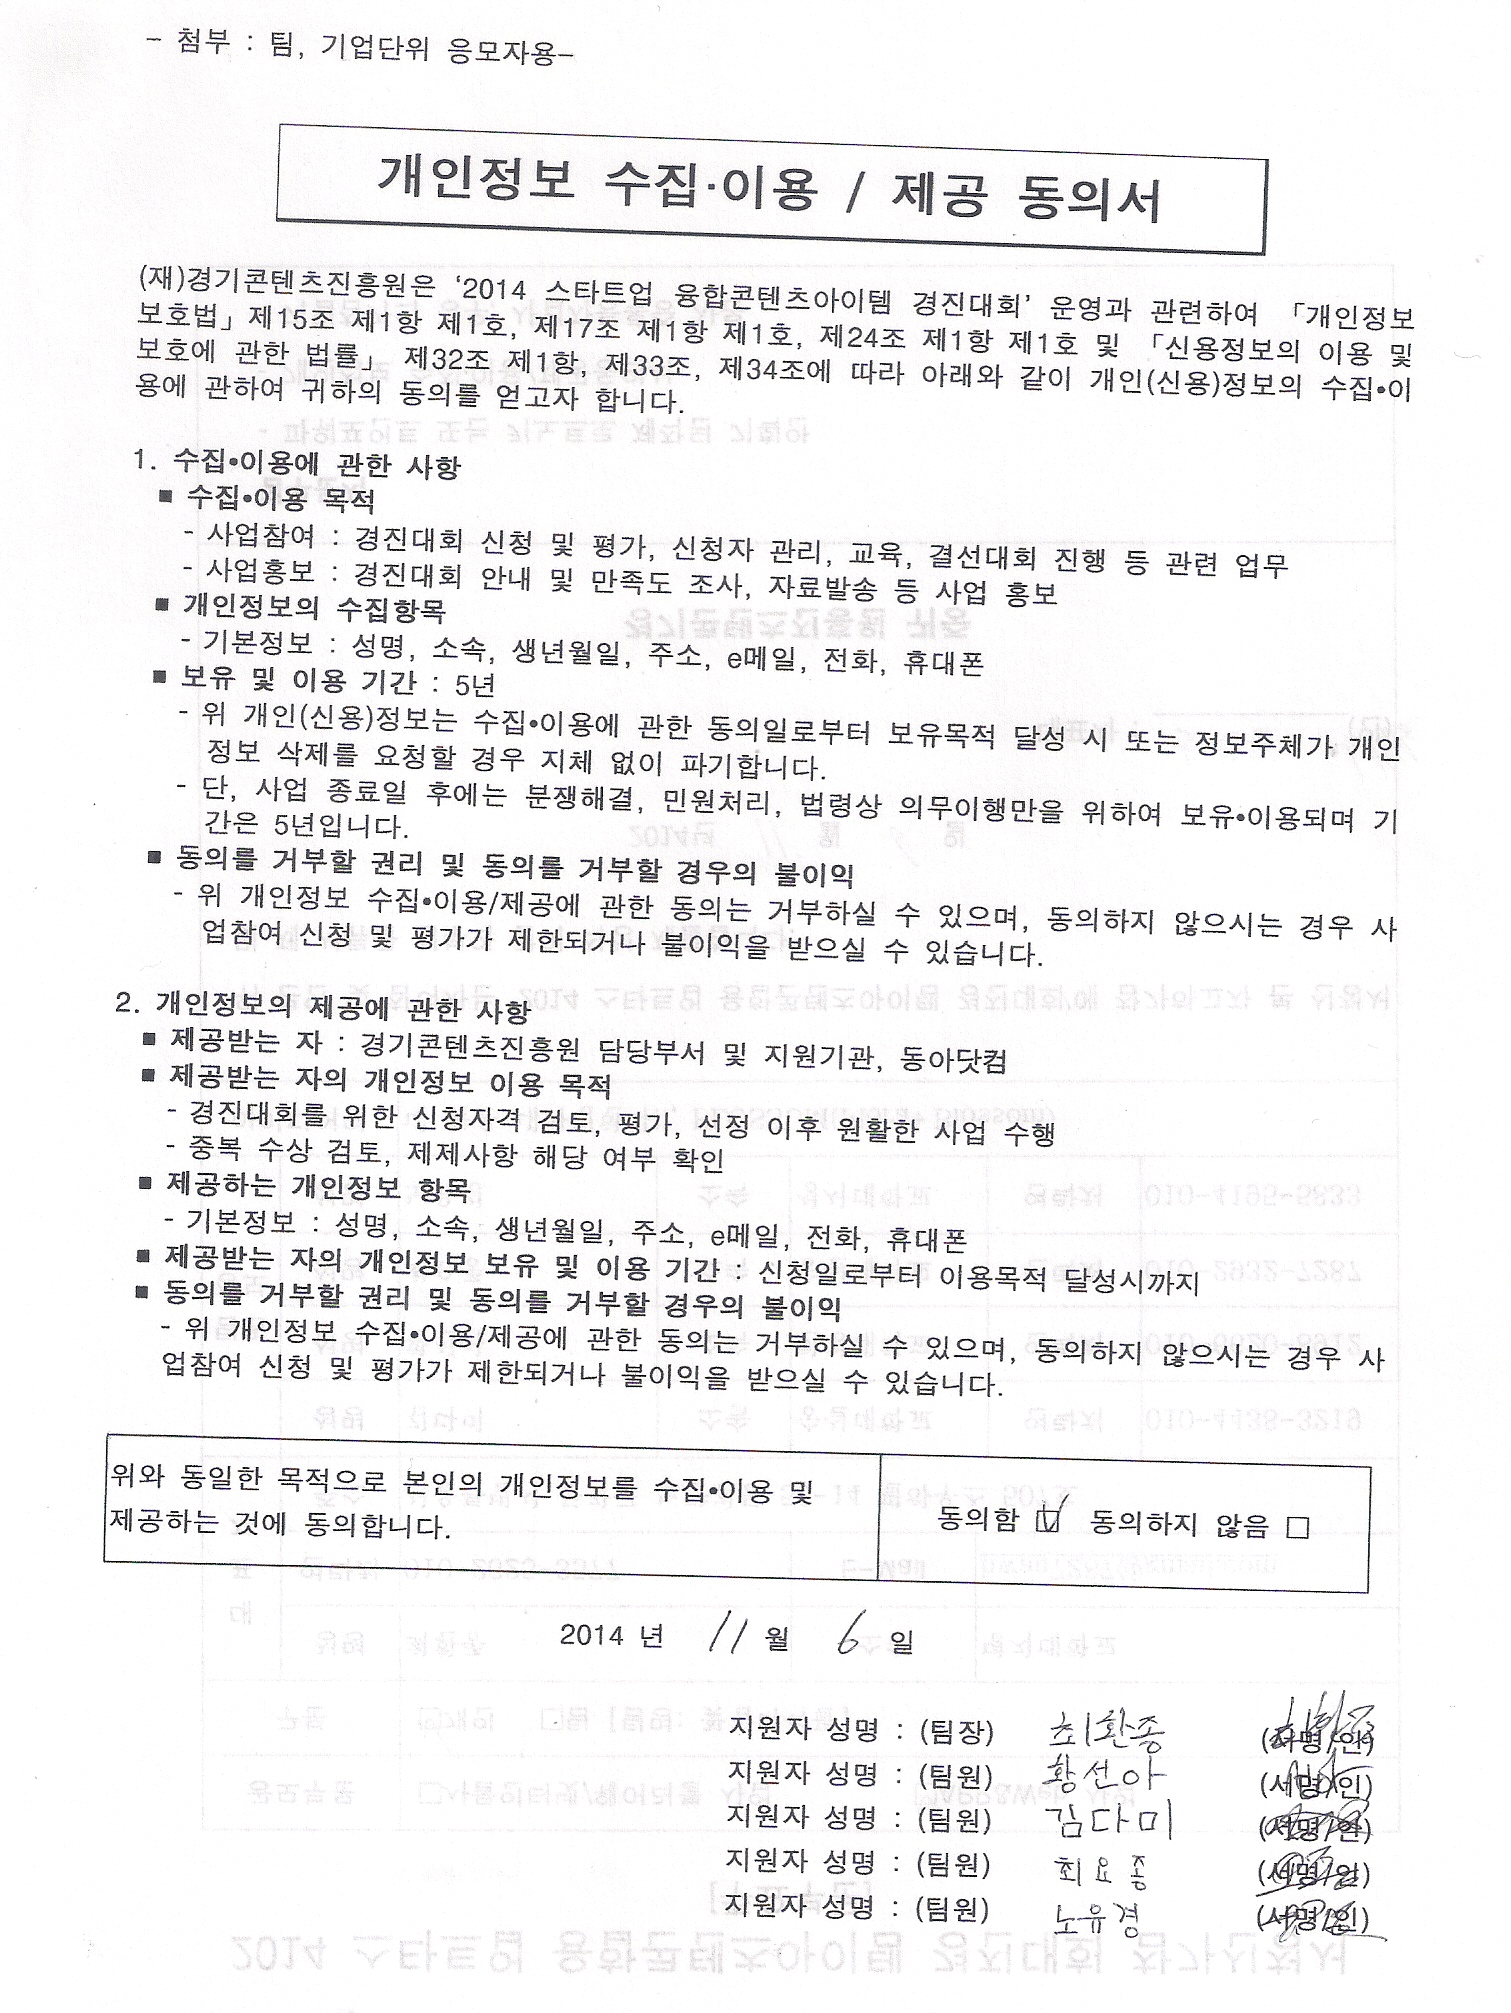 - 첨부 : 팀, 기업단위 응모자용-
개인정보 수집·이용 / 제공 동의서
(재)경기콘텐츠진흥원은 '2014 스타트업 융합콘텐츠아이템 경진대회' 운영과 관련하여 「개인정보
보호법」제15조 제1항 제1호, 제17조 제1항 제1호, 제24조 제1항 제1호 및 「신용정보의 이용 및
보호에 관한 법률」 제32조 제1항, 제33조, 제34조에 따라 아래와 같이 개인(신용)정보의 수집•이
용에 관하여 귀하의 동의를 얻고자 합니다.
1. 수집•이용에 관한 사항
■ 수집•이용 목적
- 사업참여 : 경진대회 신청 및 평가, 신청자 관리, 교육, 결선대회 진행 등 관련 업무
- 사업홍보 : 경진대회 안내 및 만족도 조사, 자료발송 등 사업 홍보
■ 개인정보의 수집항목
- 기본정보 : 성명, 소속, 생년월일, 주소, e메일, 전화, 휴대폰
■ 보유 및 이용 기간 : 5년
- 위 개인(신용)정보는 수집•이용에 관한 동의일로부터 보유목적 달성 시 또는 정보주체가 개인
정보 삭제를 요청할 경우 지체 없이 파기합니다.
- 단, 사업 종료일 후에는 분쟁해결, 민원처리, 법령상 의무이행만을 위하여 보유•이용되며 기
간은 5년입니다.
■ 동의를 거부할 권리 및 동의를 거부할 경우의 불이익
- 위 개인정보 수집•이용/제공에 관한 동의는 거부하실 수 있으며, 동의하지 않으시는 경우 사
업참여 신청 및 평가가 제한되거나 불이익을 받으실 수 있습니다.
2. 개인정보의 제공에 관한 사항
■ 제공받는 자 : 경기콘텐츠진흥원 담당부서 및 지원기관, 동아닷컴
■ 제공받는 자의 개인정보 이용 목적
- 경진대회를 위한 신청자격 검토, 평가, 선정 이후 원활한 사업 수행
- 중복 수상 검토, 제제사항 해당 여부 확인
■ 제공하는 개인정보 항목
- 기본정보 : 성명, 소속, 생년월일, 주소, e메일, 전화, 휴대폰
■ 제공받는 자의 개인정보 보유 및 이용 기간 : 신청일로부터 이용목적 달성시까지
■ 동의를 거부할 권리 및 동의를 거부할 경우의 불이익
- 위 개인정보 수집•이용/제공에 관한 동의는 거부하실 수 있으며, 동의하지 않으시는 경우 사
업참여 신청 및 평가가 제한되거나 불이익을 받으실 수 있습니다.
위와 동일한 목적으로 본인의 개인정보를 수집•이용 및
제공하는 것에 동의합니다.
동의함 ☑ 동의하지 않음 □
2014 년 11 월 6 일
지원자 성명 : (팀장) 최환종 (서명/인)
지원자 성명 : (팀원) 황선아 (서명/인)
지원자 성명 : (팀원) 김다미 (서명/인)
지원자 성명 : (팀원) 최요종 (서명/인)
지원자 성명 : (팀원) 노유경 (서명/인)